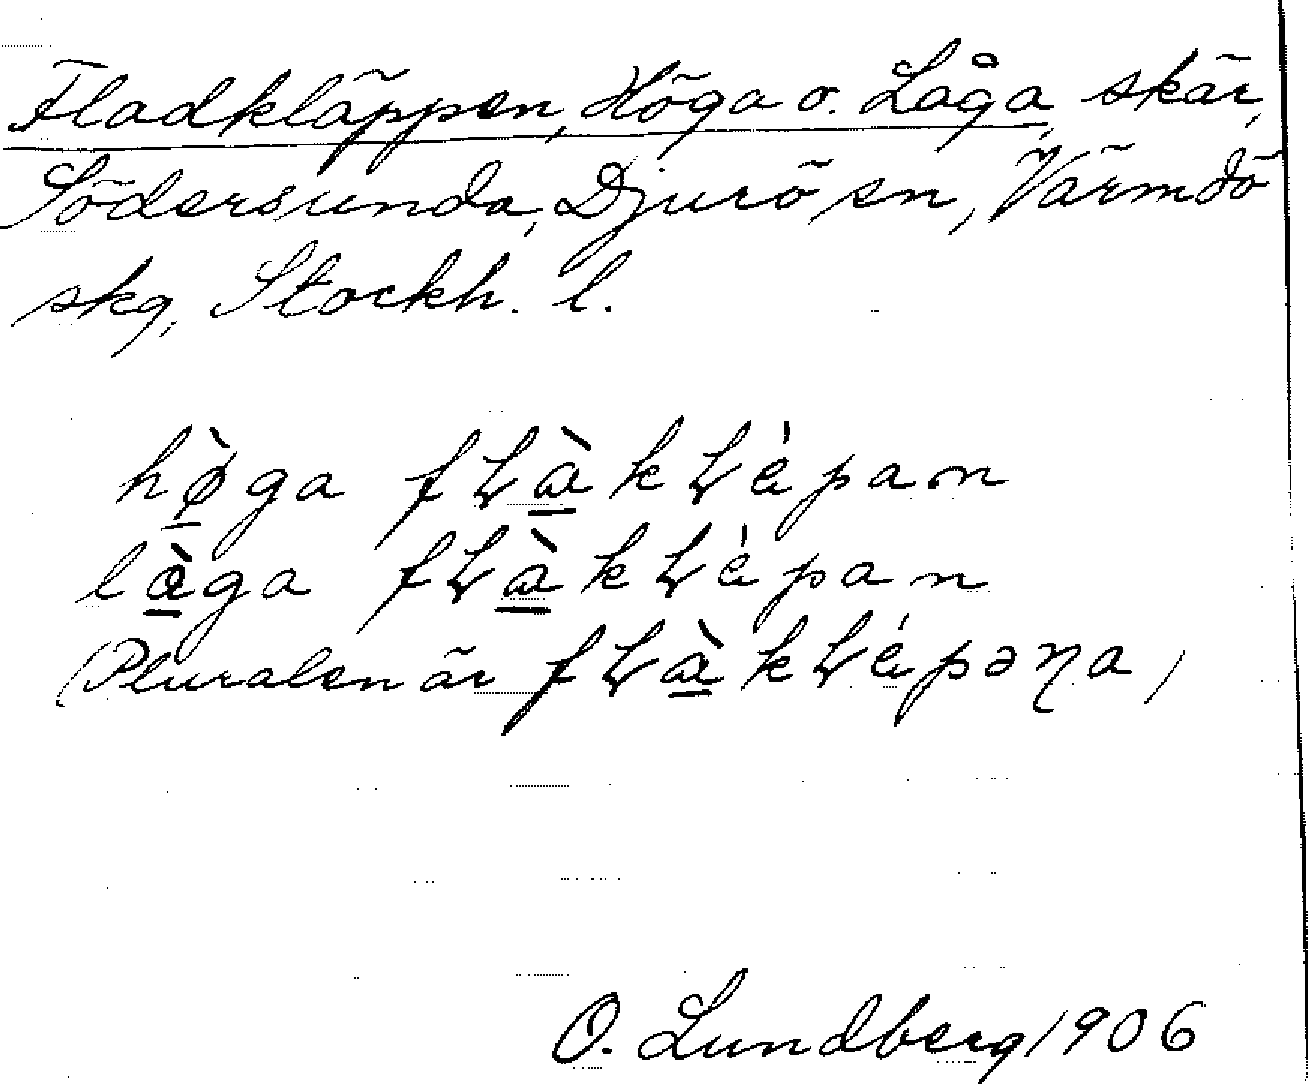 Fladkläppen, Höga o. Låga, skär,
Södersunda, Djurö sn, Värmdö
skg, Stockh. l.
hø̲̀ga fꝆà̲kꝆèpan
lå̲̀ga fꝆà̲kꝆèpan
(Pluralen är fꝆà̲kꝆèpəɳa)
O. Lundberg 1906